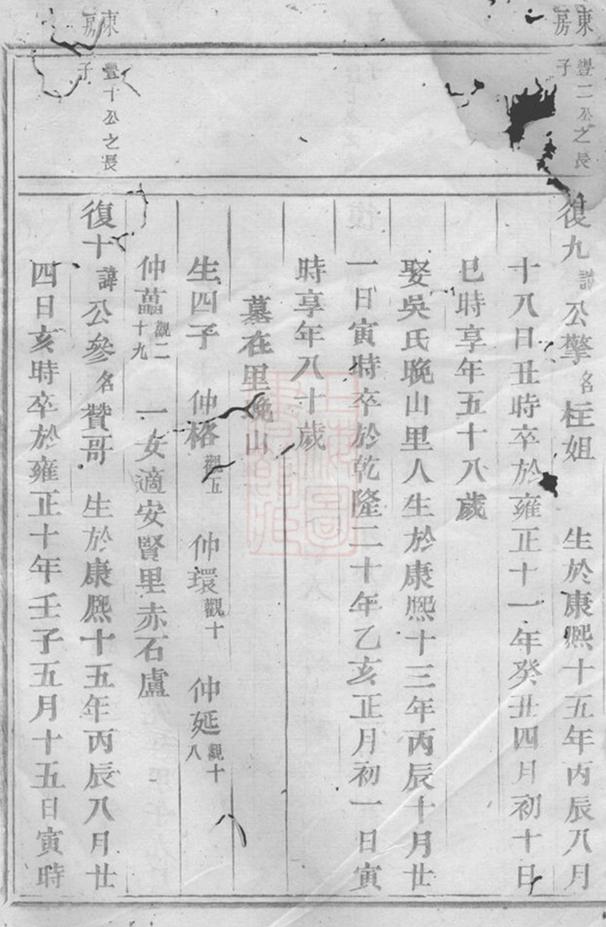 東房
豐二公之長子
復九諱公擎名枉姐　生於康熙十五年丙辰八月
十八日丑時卒於雍正十一年癸丑四月初十日
巳時享年五十八歲
娶吳氏晚山里人生於康熙十三年丙辰十月廿
一日寅時卒於乾隆二十年乙亥正月初一日寅
時享年八十歲
墓在里晚山
生四子　仲格觀五　仲環觀十　仲延觀十八
仲藟觀二十九　一女適安賢里赤石盧
東房
豐十公之長子
復十諱公參名贊哥　生於康熙十五年丙辰八月廿
四日亥時卒於雍正十年壬子五月十五日寅時